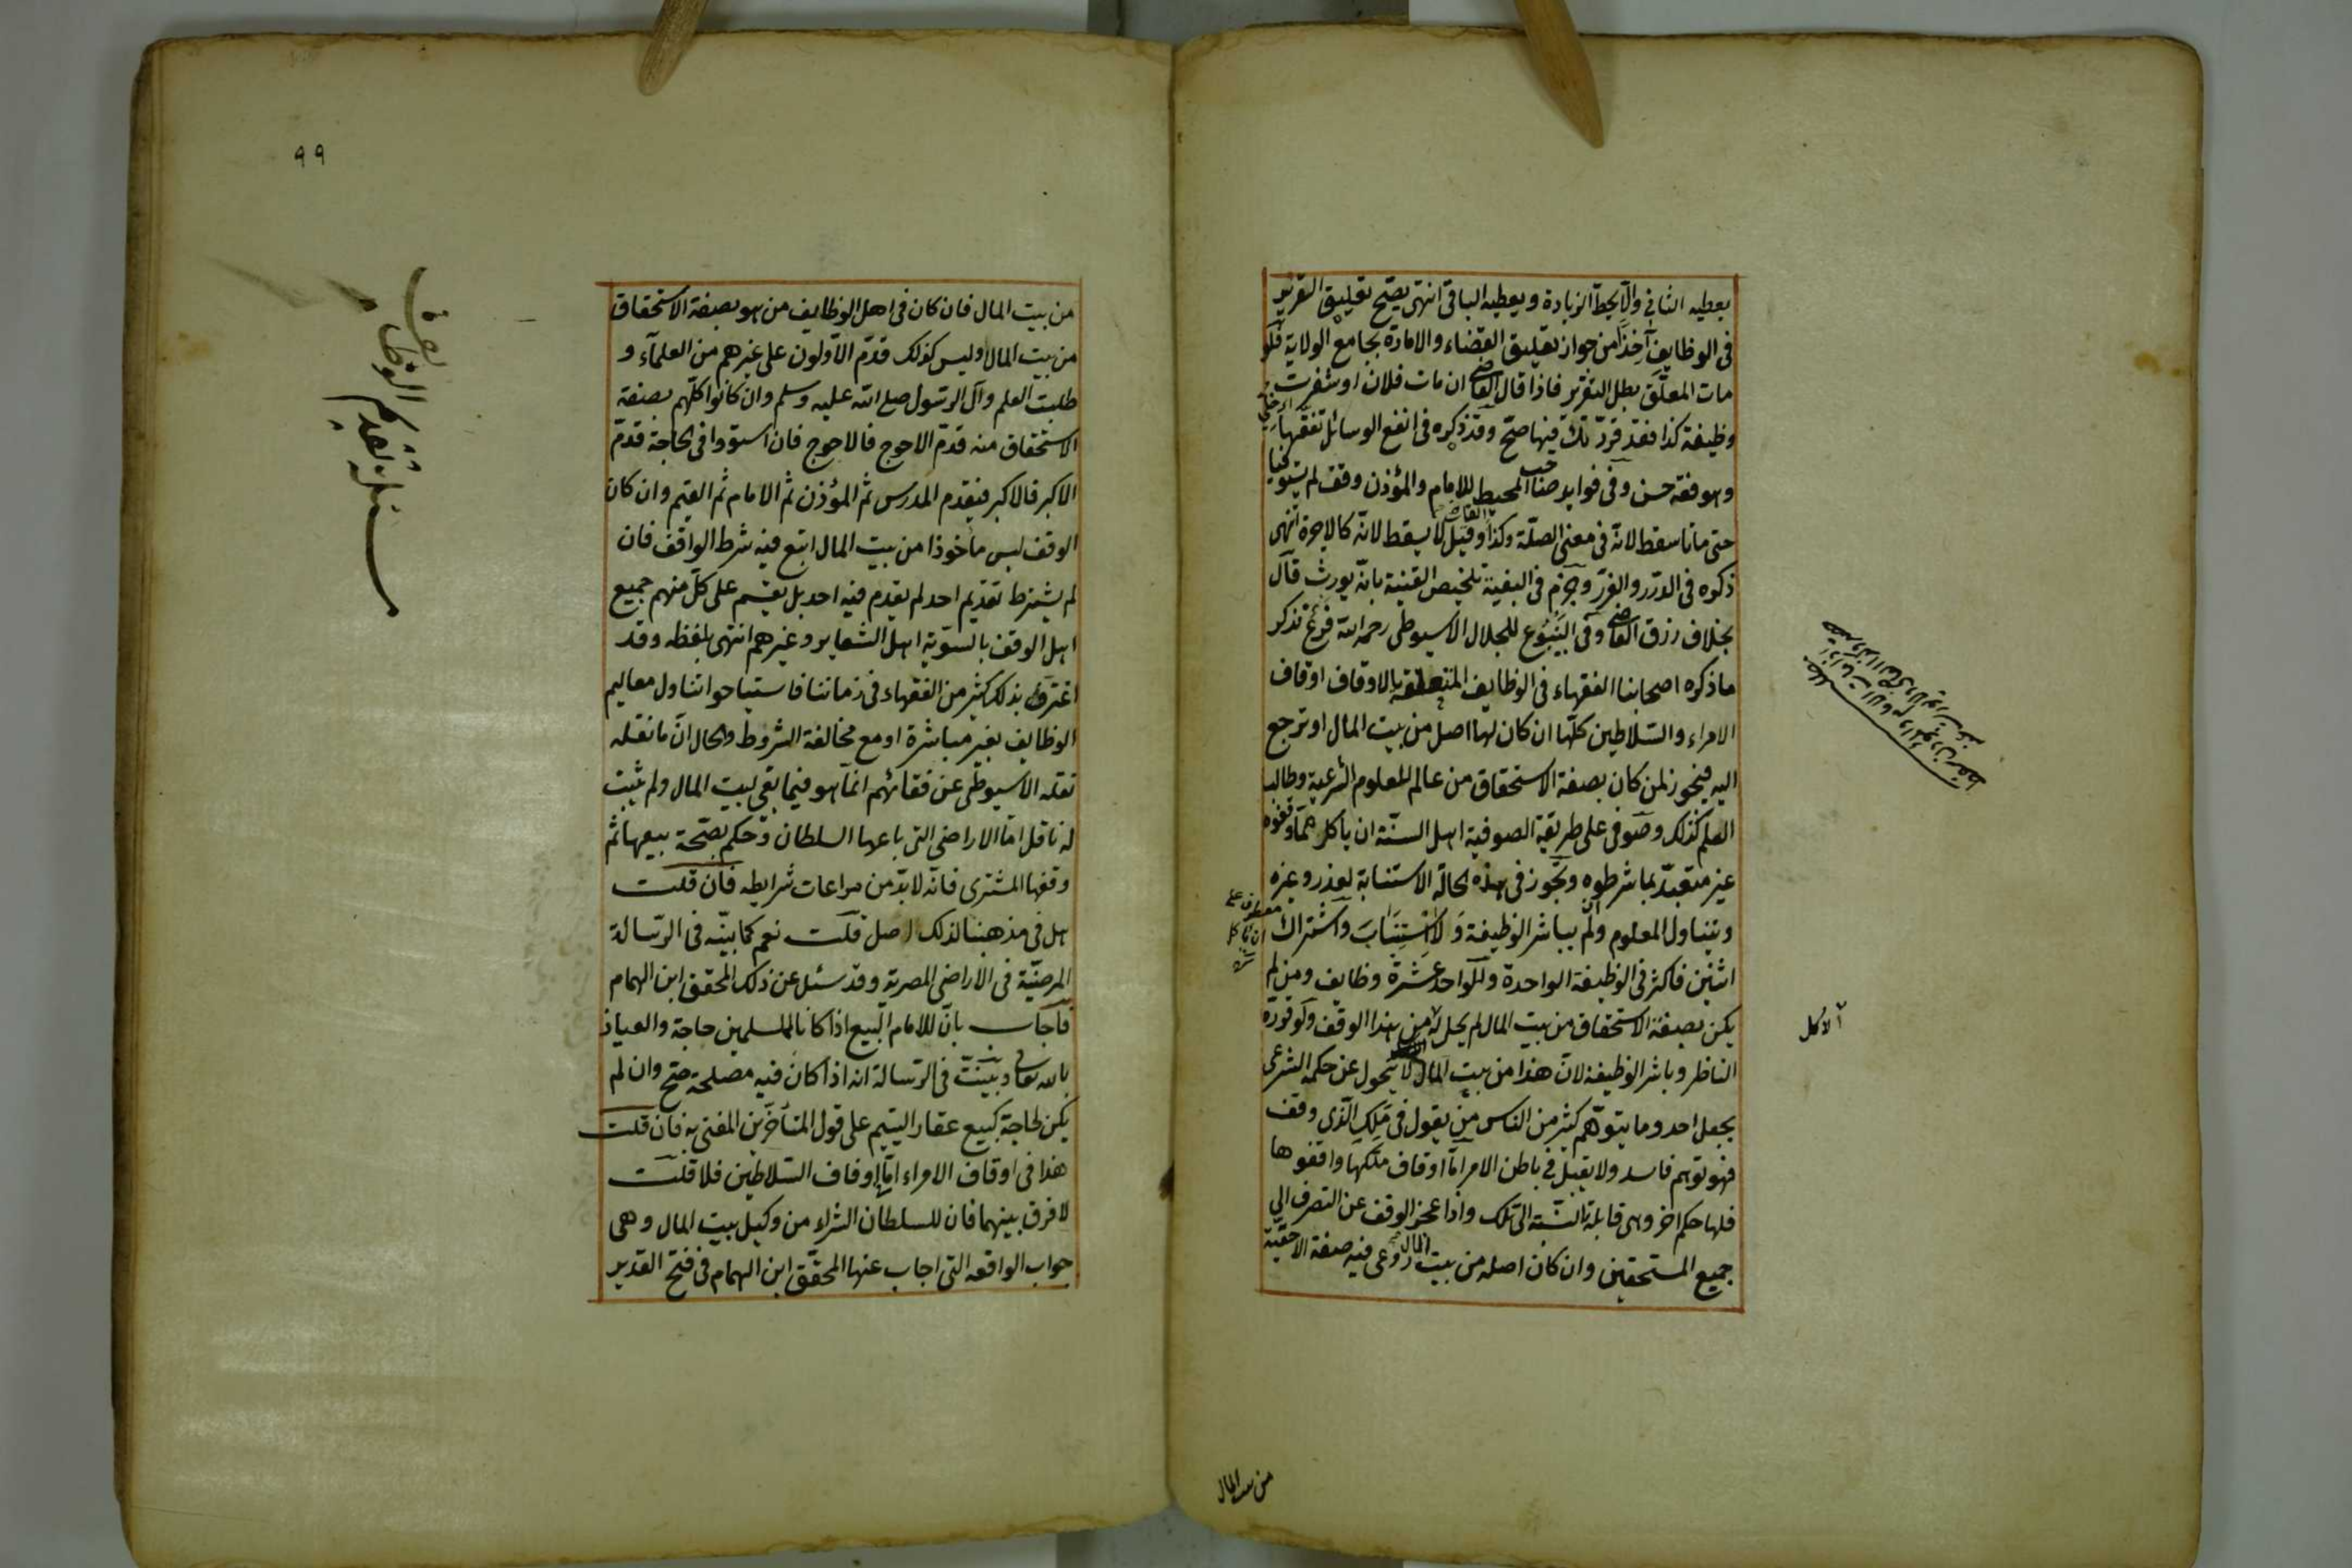 يعطيه الثاني والا يحط الزيادة ويعطيه الباقى انتهى يصح تعليق التقرير
فى الوظايف آخذا من جواز تعليق القضاء والامارة بجامع الولاية فلو
مات المعلق بطل التقرير فاذا قال القاضى ان مات فلان او شغرت
وظيفة كذا فقد قررتك فيها صح وقد ذكره فى انفع الوسائل تفقها
وهو فقه حسن وفى فوايد صاحب المحيط للامام والمؤذن وقف لم يستوفيا
حتى ماتا سقط لانه فى معنى الصلة وكذا القاضى وقيل لا يسقط لانه كالاجرة انتهى
ذكره فى الدرر والغرر وجزم فى البغية تلخيص القنية بانه يورث قال
بخلاف رزق القاضى وفى الينبوع للجلال الاسيوطى رحمه الله فرع تذكر
ما ذكره اصحابنا الفقهاء فى الوظايف المتعلقة بالاوقاف اوقاف
الامراء والسلاطين كلها ان كان لها اصل من بيت المال او ترجع
اليه فيجوز لمن كان بصفة الاستحقاق من عالم للعلوم الشرعية وطالب
العلم كذلك وصوفى على طريقة الصوفية اهل السنة ان ياكل مما وقفوه
غير متقيد بما شرطوه ويجوز فى هذه الحالة الاستنابة لعذر وغيره
ويتناول المعلوم وان لم يباشر الوظيفة ولا استناب واشتراك
اثنين فاكثر فى الوظيفة الواحدة وللواحد عشرة وظايف ومن لم
يكن بصفة الاستحقاق من بيت المال لم يحل له من هذا الوقف ولو قرره
الناظر وباشر الوظيفة لان هذا من بيت المال لا يتحول عن حكمه الشرعى
بجعل احد وما يتوهم كثير من الناس من يقول فى ملك الذى وقف
فهو توهم فاسد ولا يقبل فى باطن الامر اما اوقاف ملكها واقفوها
فلها حكم اخر وهى قابلة النسبة الى تلك واذا عجز الوقف عن التصرف الى
جميع المستحقين وان كان اصله من بيت المال روعى فيه صفة الاحقية
معطوف على
ان ياكل
الاكل
من بيت المال
٩٩
مسئلة تقديم
الوظائف
من بيت المال فان كان فى اهل الوظايف من هو بصفة الاستحقاق
من بيت المال وليس كذلك قدم الاولون على غيرهم من العلماء و
طلبة العلم وآل الرسول صلى الله عليه وسلم وان كانوا كلهم بصفة
الاستحقاق منه قدم الاحوج فالاحوج فان استووا فى الحاجة قدم
الاكبر فالاكبر فيقدم المدرس ثم المؤذن ثم الامام ثم القيم وان كان
الوقف ليس ماخوذا من بيت المال اتبع فيه شرط الواقف فان
لم يشترط تقديم احد لم يقدم فيه احد بل يقسم على كل منهم جميع
اهل الوقف بالسوية اهل الشعاير وغيرهم انتهى بلفظه وقد
اغتر بذلك كثير من الفقهاء فى زماننا فاستباحوا تناول معاليم
الوظايف بغير مباشرة او مع مخالفة الشروط والحال ان ما نقله
نقله الاسيوطى عن فقهائهم انما هو فيما بقى لبيت المال ولم يثبت
له ناقل اما الاراضى التى باعها السلطان وحكم بصحة بيعها ثم
وقفها المشترى فانه لابد من مراعات شرايطه فان قلت
هل فى مذهبنا لذلك اصل قلت نعم كما بينه فى الرسالة
المرضية فى الاراضى المصرية وقد سئل عن ذلك المحقق ابن الهمام
فاجاب بان للامام البيع اذا كان بالمسلمين حاجة والعياذ
بالله تعالى وبينت فى الرسالة انه اذا كان فيه مصلحة صح وان لم
يكن لحاجة كبيع عقار اليتيم على قول المتأخرين المفتى به فان قلت
هذا فى اوقاف الامراء اما اوقاف السلاطين فلا قلت
لا فرق بينهما فان للسلطان الشراء من وكيل بيت المال وهى
جواب الواقعه التى اجاب عنها المحقق ابن الهمام فى فتح القدير